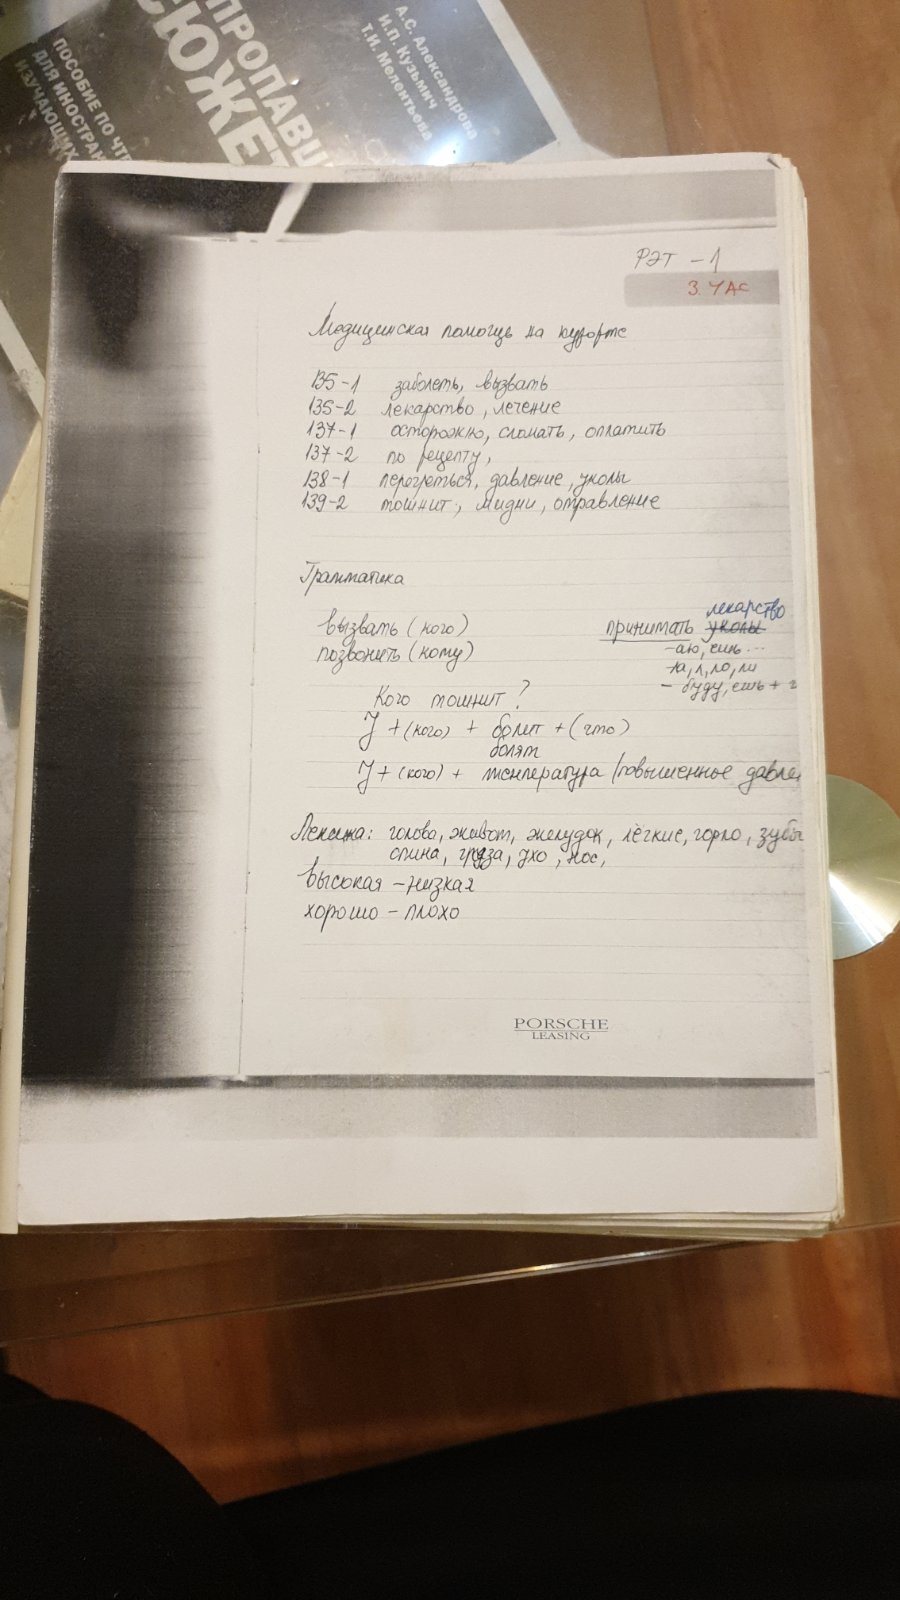 А.С. Александрова
И.П. Кузьмич
Т.И. Мелентьева
ПРОПАВШ
СЮЖЕТ
ПОСОБИЕ ПО ЧТЕ
ДЛЯ ИНОСТРАН
ИЗУЧАЮЩИХ
РЭТ -1
3. ЧАС
Медицинская помощь на курорте
135-1 заболеть, вызвать
135-2 лекарство, лечение
137-1 осторожно, сломать, оплатить
137-2 по рецепту,
138-1 перегреться, давление, уколы
139-2 тошнит, мидии, отравление
Грамматика
лекарство
вызвать (кого) принимать уколы
позвонить (кому) -аю, ешь...
-ла, л, ло, ли
- буду, ешь +
Кого тошнит?
У + (кого) + болит + (что)
болят
У + (кого) + температура (повышенное давле
Лексика: голова, живот, желудок, лёгкие, горло, зубы
спина, грудь, ухо, нос,
высокая - низкая
хорошо - плохо
PORSCHE
LEASING